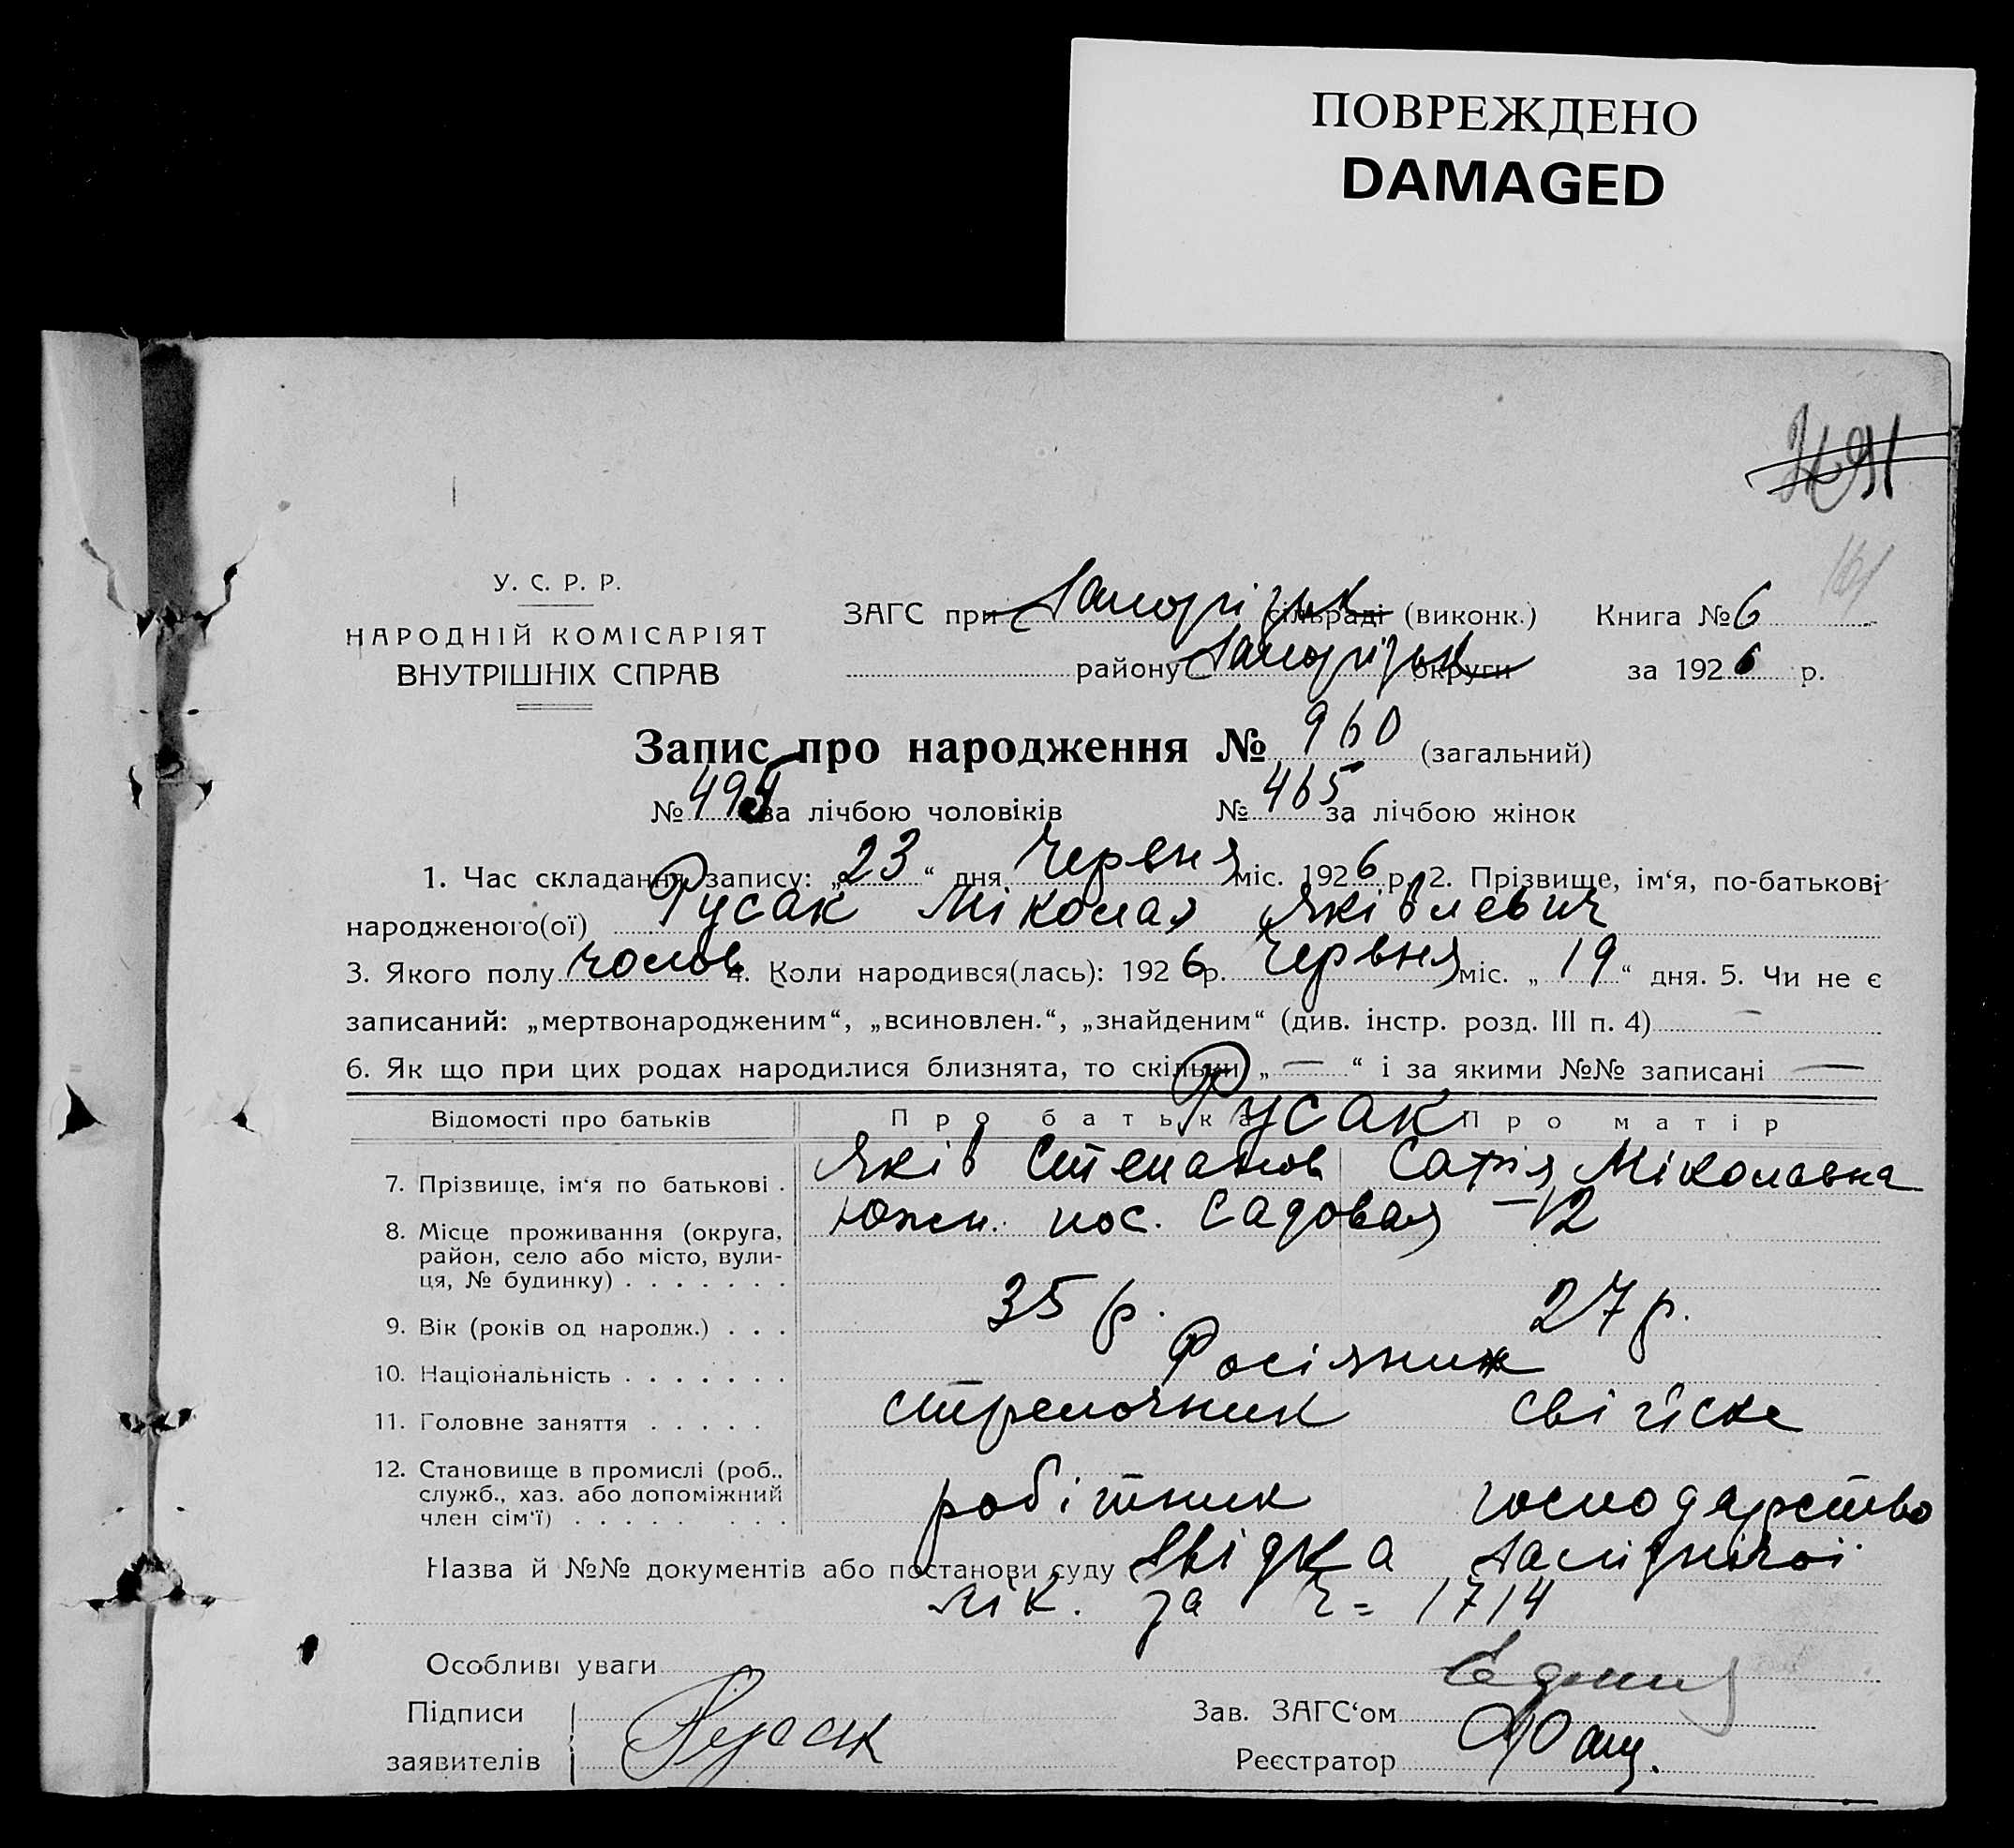 ПОВРЕЖДЕНО
DAMAGED
У. С. Р. Р.
НАРОДНІЙ КОМІСАРІЯТ
ВНУТРІШНІХ СПРАВ
ЗАГС при Запорізьк сільраді (виконк.) Книга № 6
району Запорізьк округи за 1926 р.
161
Запис про народження № 960 (загальний)
№ 495 за лічбою чоловіків № 465 за лічбою жінок
1. Час складання запису: „23“ дня Червня міс. 1926 р. 2. Прізвище, ім‘я, по-батькові
народженого(ої) Русак Міколая Яківлевич
3. Якого полу чолов 4. Коли народився(лась): 1926 р. Червня міс. „19“ дня. 5. Чи не є
записаний: „мертвонародженим“, „всиновлен.“, „знайденим“ (див. інстр. розд. III п. 4) —
6. Як що при цих родах народилися близнята, то скільки „—“ і за якими №№ записані —
Відомості про батьків Про батька Русак Про матір
7. Прізвище, ім‘я по батькові . Яків Степанов Софія Міколавна
8. Місце проживання (округа, район, село або місто, вулиця, № будинку) . . . . . . . Южн. пос. Садовая — 12
9. Вік (років од народж.) . . . 35 р. 27 р.
10. Національність . . . . . . . Росіяник
11. Головне заняття . . . . . стрелочник свійске
12. Становище в промислі (роб., служб., хаз. або допоміжний член сім‘ї) . . . . . . . . робітник господарство
Назва й №№ документів або постанови суду Звідка Залізнічої
лік. за ч= 1714
Особливі уваги
Підписи
заявителів Русак
Зав. ЗАГС‘ом
Реєстратор